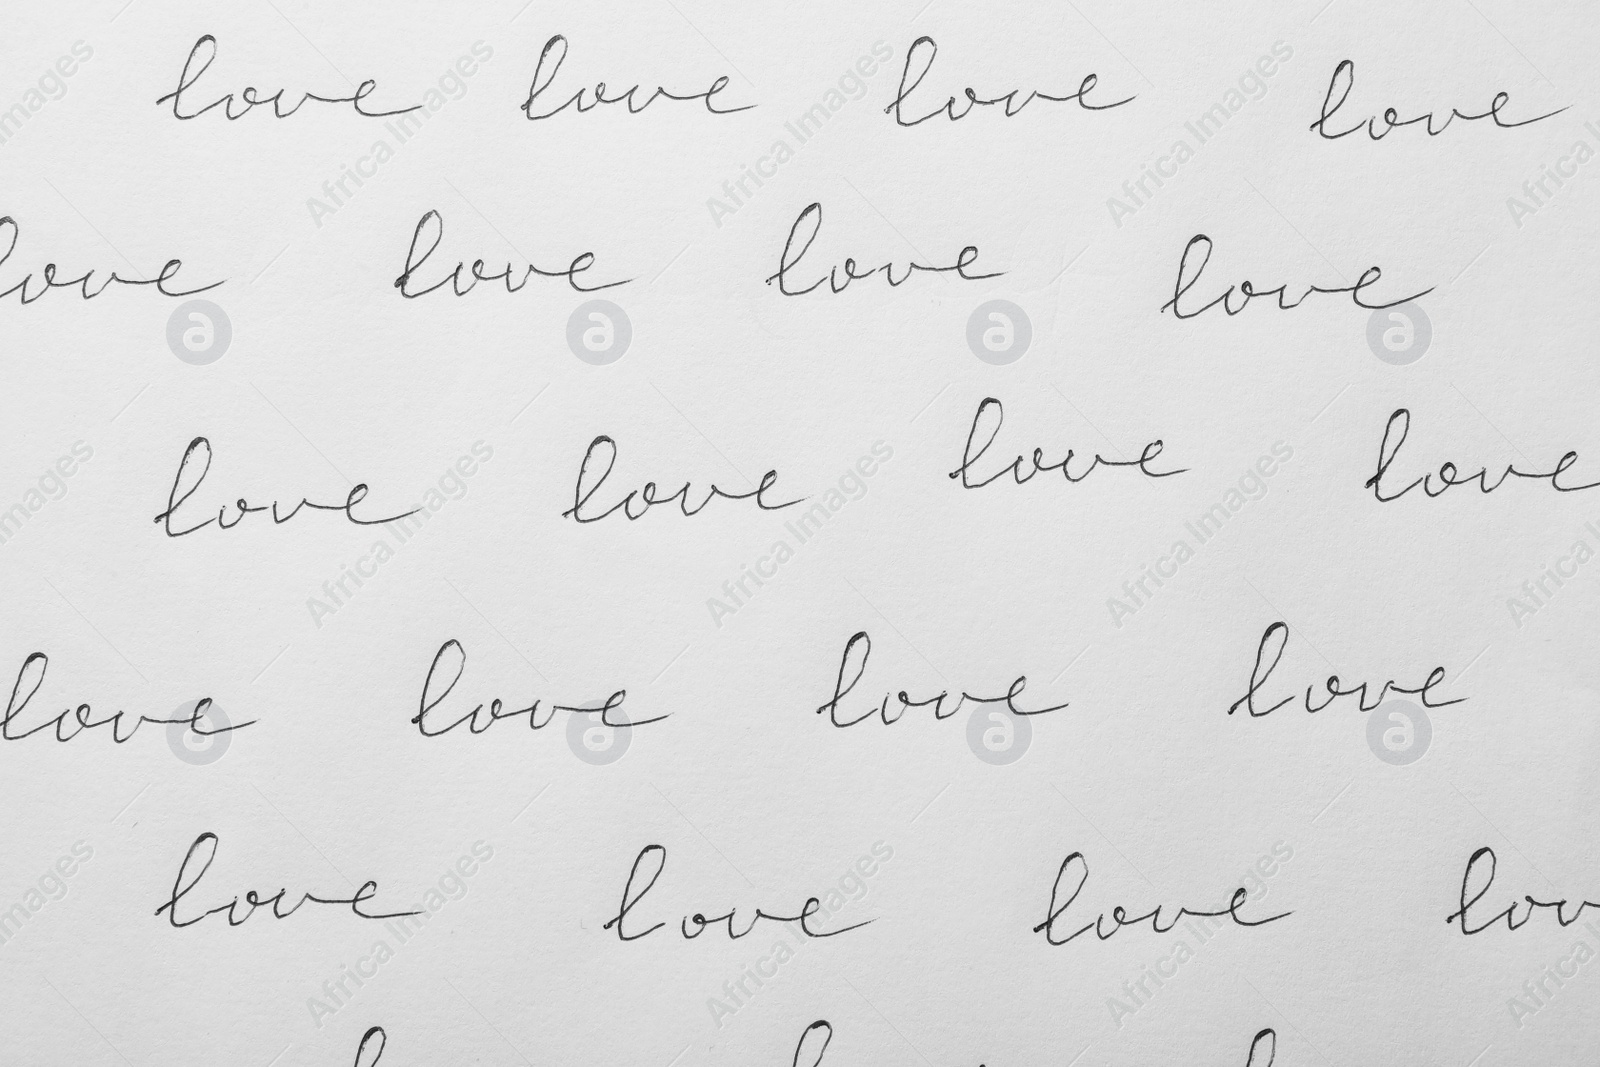 love love love love
love love love love
love love love love
love love love love
love love love lov